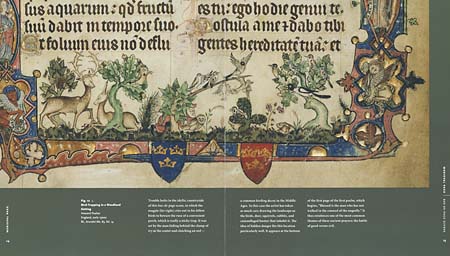 sus aquarum: qd fructū
suū dabit in tempore suo
Et folium eius nō deflu
es tu: ego hodie genui te
Postula a me et dabo tibi
gentes hereditatē tuā: et
Bird-Trapping in a Woodland
Setting
Howard Psalter
England, early
BL, Arundel Ms. 83, fol. 14
Trouble lurks in the idyllic countryside
of this bas-de-page scene, in which the
magpie (far right) cries out to his fellow
birds to beware the ruse of a convenient
perch, which is really a sticky trap. It was
set by the man hiding behind the clump of
ivy at the center and clutching an owl—
a common in the Middle
Ages. In this case the artist has taken
as much care drawing the landscape as
the birds, deer, squirrels, rabbits, and
camouflaged hunter that inhabit it. The
idea of hidden danger fits this location
particularly well. It appears at the bottom
of the first page of the first psalm, which
begins, "Blessed is the man who has not
walked in the counsel of the ungodly." It
thus reinforces one of the most common
themes of these ancient prayers: the battle
of good versus evil.